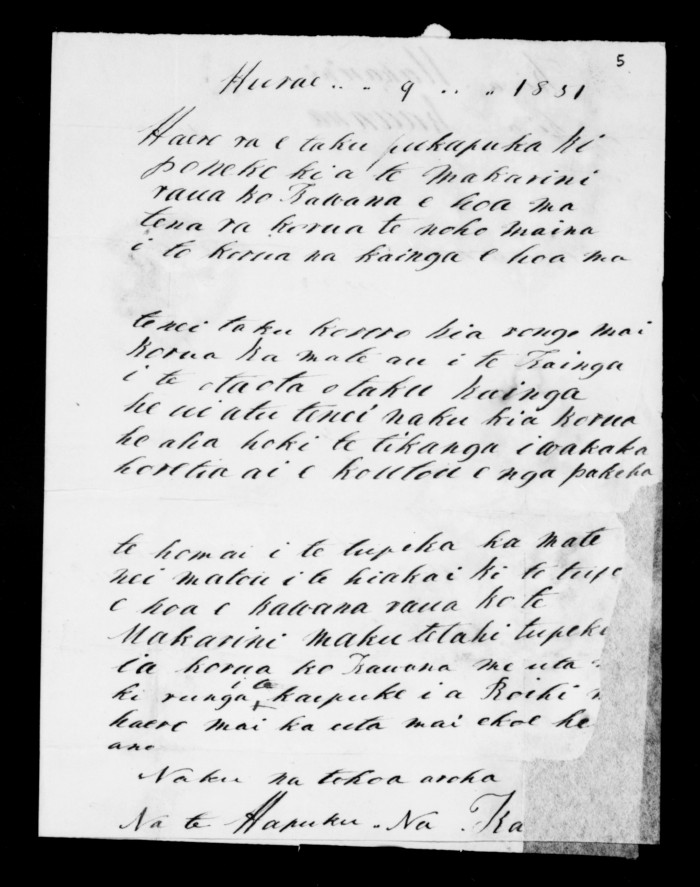 5
Hurae .. .. 9 .. .. 1851
Haere ra e taku pukapuka ki
poneke kia te makarini
raua ko Kawana e hoa ma
tena ra korua te noho maina
i to korua na kainga e hoa ma
tenei taku korero kia rongo mai
korua ka mate au i te Kainga
i te otaota o taku kainga
he ui atu tenei naku kia korua
he aha hoki te tikanga i wakaka
horetia ai e koutou e nga pakeha
te homai i te tupeka ka mate
nei matou i te hiakai ki te tupe
e hoa e kawana raua ko te
Makarini maku tetahi tupeka
ia korua ko Kawana me uta
ki runga i te kaipuke i a
haere mai ka uta mai ekoe he
ano
Naku na tokoa aroha
Na te Hapuku . Na Ka